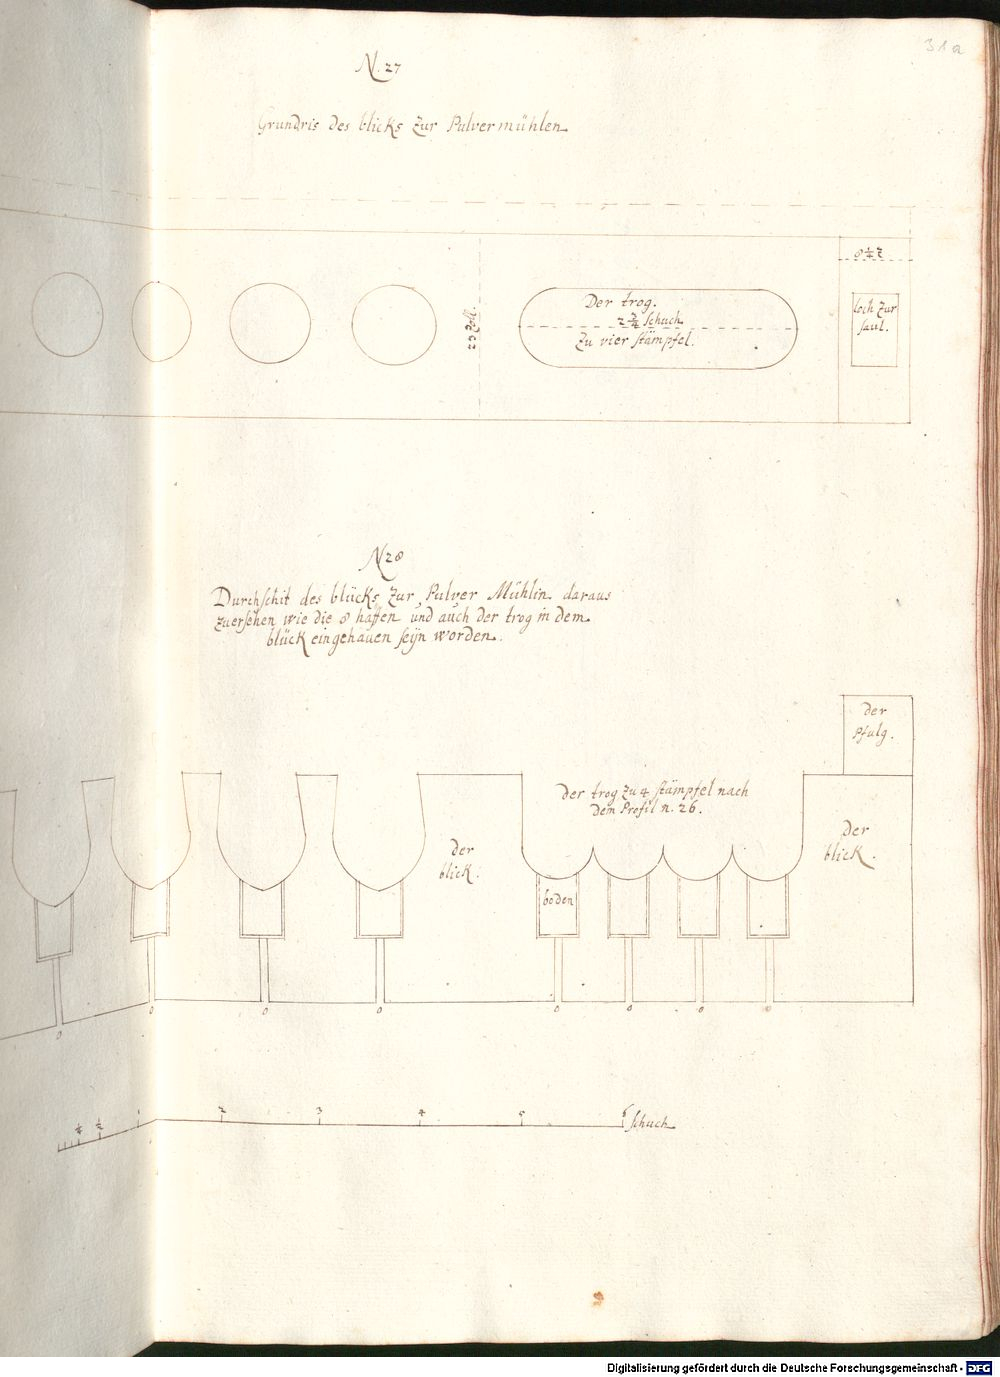 31a
N. 27
Grundris des blicks zur Pulvermühlen
8 1/4 Z
Der trog.
2 3/4 schuch
zu vier stämpfel.
23 Zoll.
loch zur
saul.
N 28
Durchschit des blücks zur Pulver Mühlin daraus
zuersehen wie die 8 haffen und auch der trog in dem
blück eingehauen seÿn worden.
der
Pfulg.
Der trog zu 4 stämpfel nach
dem Profil n. 26.
der
blick.
der
blick.
boden
0 0 0 0 0 0 0 0
1/4 1/2 1 2 3 4 5 6 schuch
Digitalisierung gefördert durch die Deutsche Forschungsgemeinschaft - DFG